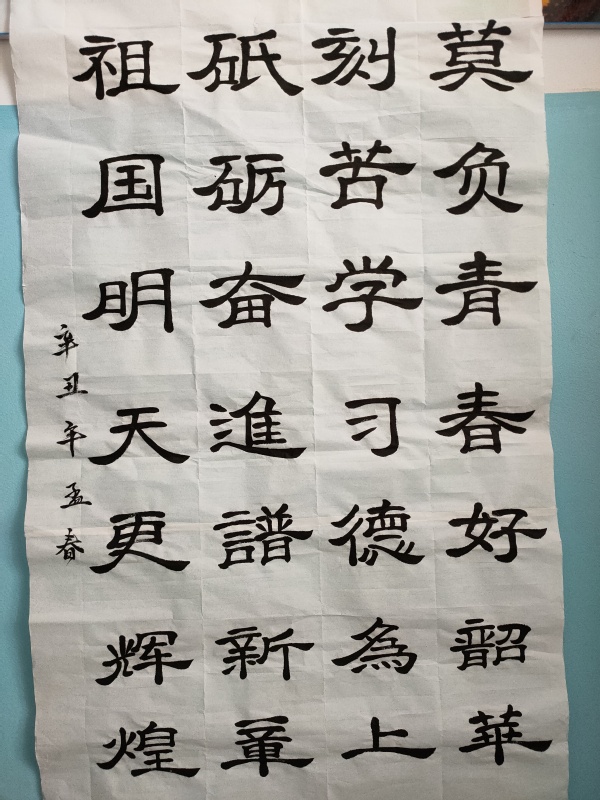 莫负青春好韶華
刻苦学习德為上
砥砺奋進譜新章
祖国明天更辉煌
辛丑年孟春